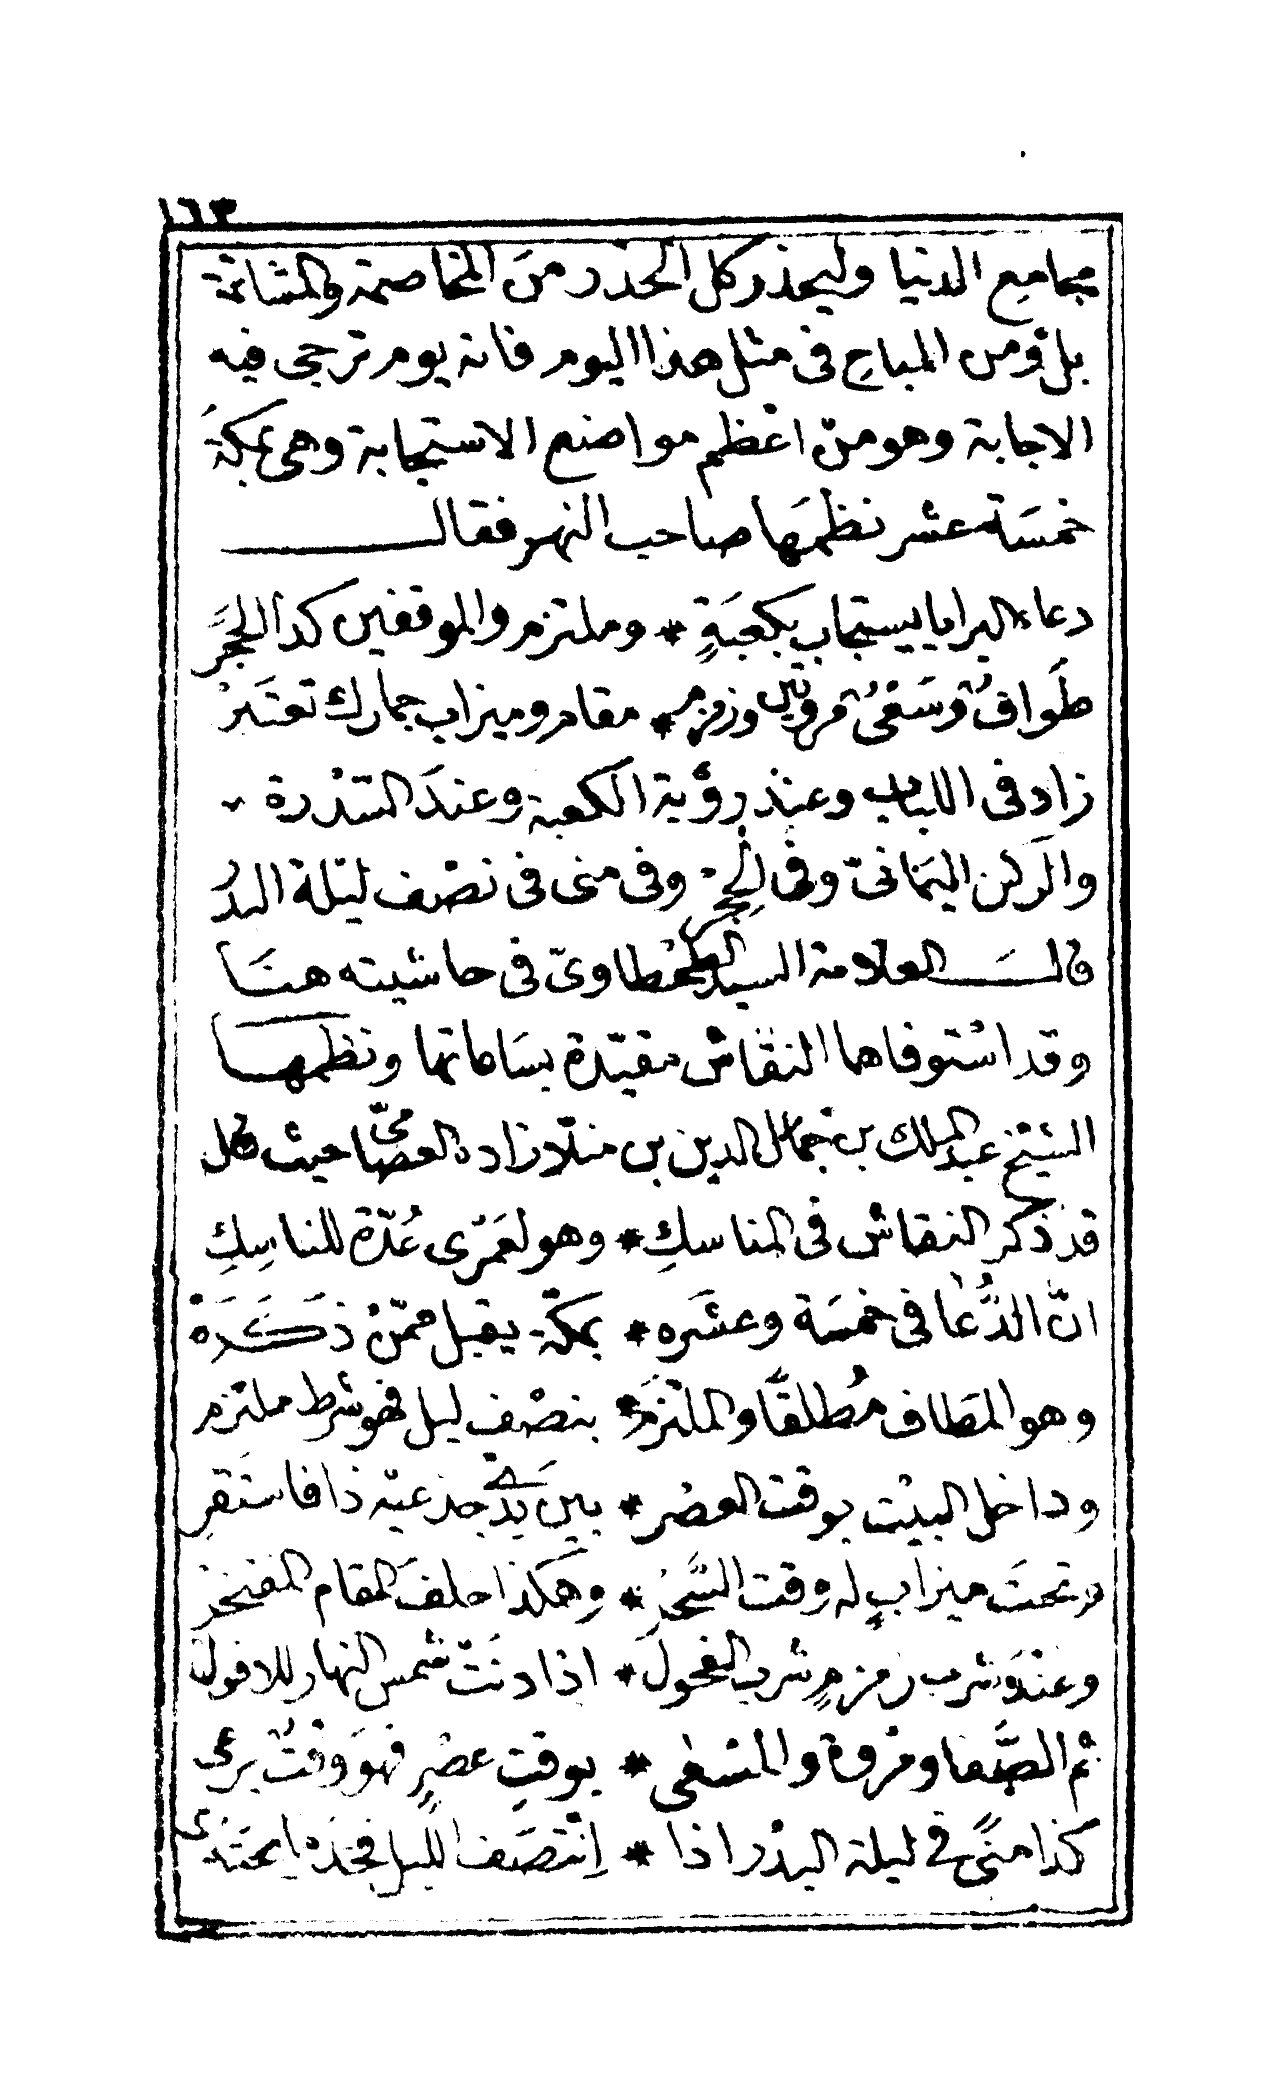 ١٦٣
مجامع الدنيا وليحذر كل الحذر من المخاصمة والمشاتمة
بل ومن المباح في مثل هذا اليوم فانه يوم ترجى فيه
الاجابة وهو من اعظم مواضع الاستجابة وهي بمكة
خمسة عشر نظمها صاحب النهر فقال
دعاء البرايا يستجاب بكعبة * وملتزم والموقفين كذا الحجر
طواف وسعي مروتين وزمزم * مقام وميزاب جمارك تعتبر
زاد في اللباب وعند رؤية الكعبة وعند السدرة
والركن اليماني وفي الحجر وفي منى في نصف ليلة البدر
قال العلامة السيد الطحطاوي في حاشيته هنا
وقد استوفاها النقاش مقيدة بساعاتها ونظمها
الشيخ عبد الملك بن جمال الدين بن منلا زاده العصامي حيث قال
قد ذكر النقاش في المناسك * وهو لعمري عدة للناسك
ان الدعا في خمسة وعشره * بمكة يقبل ممن ذكره
وهو المطاف مطلقا والملتزم * بنصف ليل فهو شرط ملتزم
وداخل البيت بوقت العصر * بين يدي جذعيه ذا فاستقر
وتحت ميزاب له وقت السحر * وهكذا خلف المقام المفتخر
وعند شرب زمزم شرب الفحول * اذا دنت شمس النهار للافول
ثم الصفا ومروة والمسعى * بوقت عصر فهو وقت يرعى
كذا منى في ليلة البدر اذا * انتصف الليل فخذ ما يحتذى